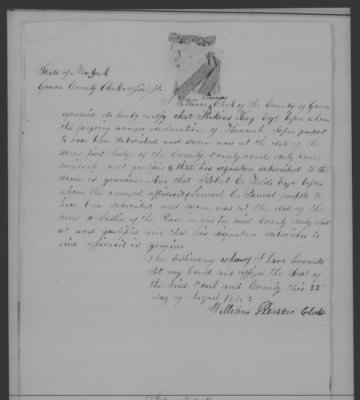 State of New York
Greene County Clerks office, ss
I William Pierson Clerk of the County of Greene
aforesaid do hereby certify that Perkins King Esqr before whom
the foregoing annexed declaration of Hannah purport
to have been subscribed and sworn was at the date of the
same first Judge of the County Courts duly com-
missioned and qualified & that his signature subscribed to the
same is genuine And that C. Fields Esqr before
whom the annexed affidavit of Samuel purports to
have been subscribed and sworn was at the date of the
same a Justice of the Peace in and for said County duly elect
ed and qualified and that his signature subscribed to
said affidavit is genuine
In testimony whereof I have hereunto
set my hand and affixed the Seal of
the said Court and County this 22
day of August 1843
William Pierson Clerk